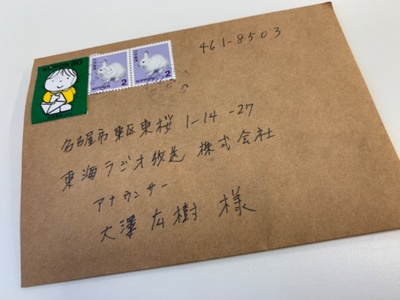 461-8503
2
2
名古屋市東区東桜1-14-27
東海ラジオ放送 株式会社
アナウンサー
大澤広樹 様